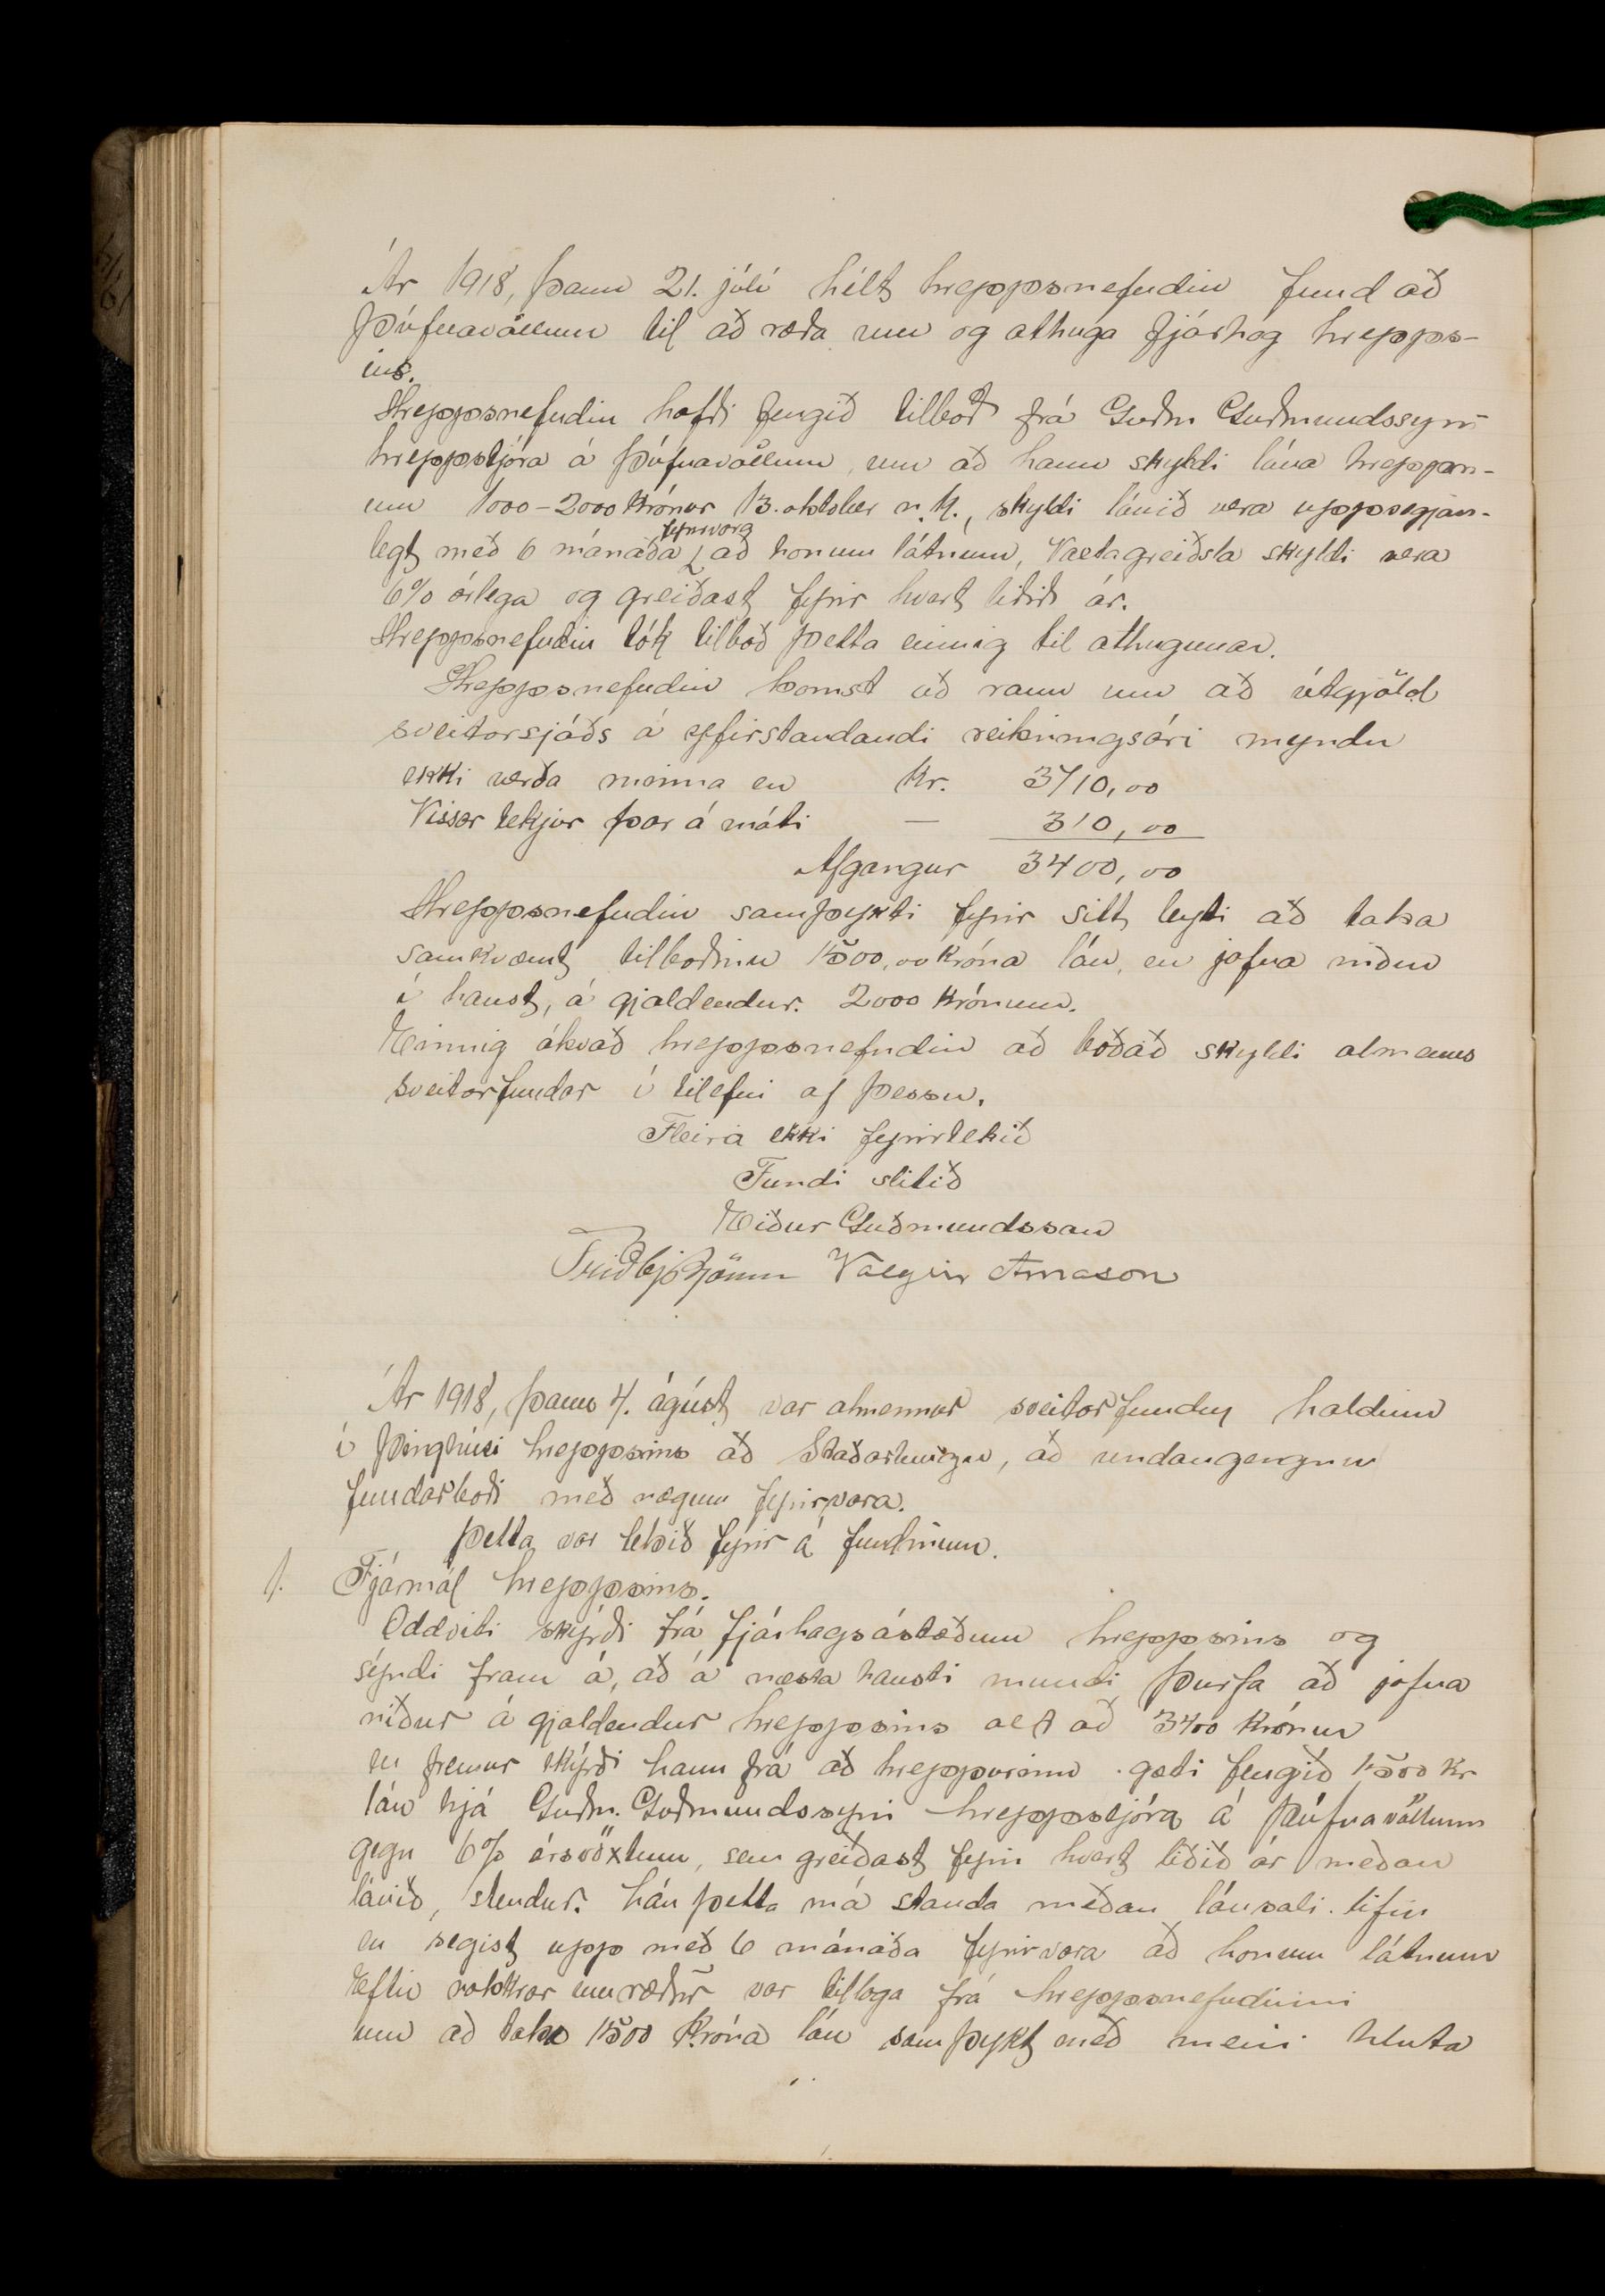 Ár 1918, þann 21. júlí hélt hreppsnefndin fund að
Þúfnavöllum til að ræða um og athuga fjárhag hrepps-
ins.
Hreppsnefndin hafði fengið tilboð frá Guðm Guðmundssyni
hreppstjóra á Þúfnavöllum, um að hann skyldi lána hreppn-
um 1000-2000 krónur 13. oktober n.k., skyldi lánið vera uppsegjan-
fyrirvara
legt með 6 mánaða að honum látnum, Vaxtagreiðsla skyldi vera
6% árlega og greiðast fyrir hvert liðið ár.
Hreppsnefndin tók tilboð þetta einnig til athugunar.
Hreppsnefndin komst að raun um að útgjöld
sveitarsjóðs á yfirstandandi reikningsári myndu
ekki verða minna en kr. 3710,00
Vissar tekjur þar á móti — 310,00
Afgangur 3400,00
Hreppsnefndin samþykti fyrir sitt leyti að taka
samkvæmt tilboðinu 1500,00 króna lán, en jafna niður
í haust, á gjaldendur. 2000 krónum.
Einnig ákvað hreppsnefndin að boðað skyldi almenns
sveitarfundar í tilefni af þessu.
Fleira ekki fyrirtekið
Fundi slitið
Eiður Guðmundsson
Friðbj Björnss Valgeir Árnason
Ár 1918, þann 4. ágúst var almennur sveitarfundur haldinn
í þinghúsi hreppsins að Staðartungu, að undangengnu
fundarboði með nægum fyrirvara.
Þetta var tekið fyrir á fundinum.
1. Fjármál hreppsins.
Oddviti skýrði frá fjárhagsástæðum hreppsins og
sýndi fram á, að á næsta hausti mundi þurfa að jafna
niður á gjaldendur hreppsins alt að 3400 krónum
en fremur skýrði hann frá að hreppurinn gæti fengið 1500 kr
lán hjá Guðm. Guðmundssyni hreppstjóra á Þúfnavöllum
gegn 6% ársvöxtum, sem greiðast fyrir hvert liðið ár meðan
lánið, stendur. Lán þetta má standa meðan lánsali lifir
en segist upp með 6 mánaða fyrirvara að honum látnum
Eftir nokkrar umræður var tillaga frá hreppsnefndinni
um að taka 1500 króna lán samþykt með meiri hluta